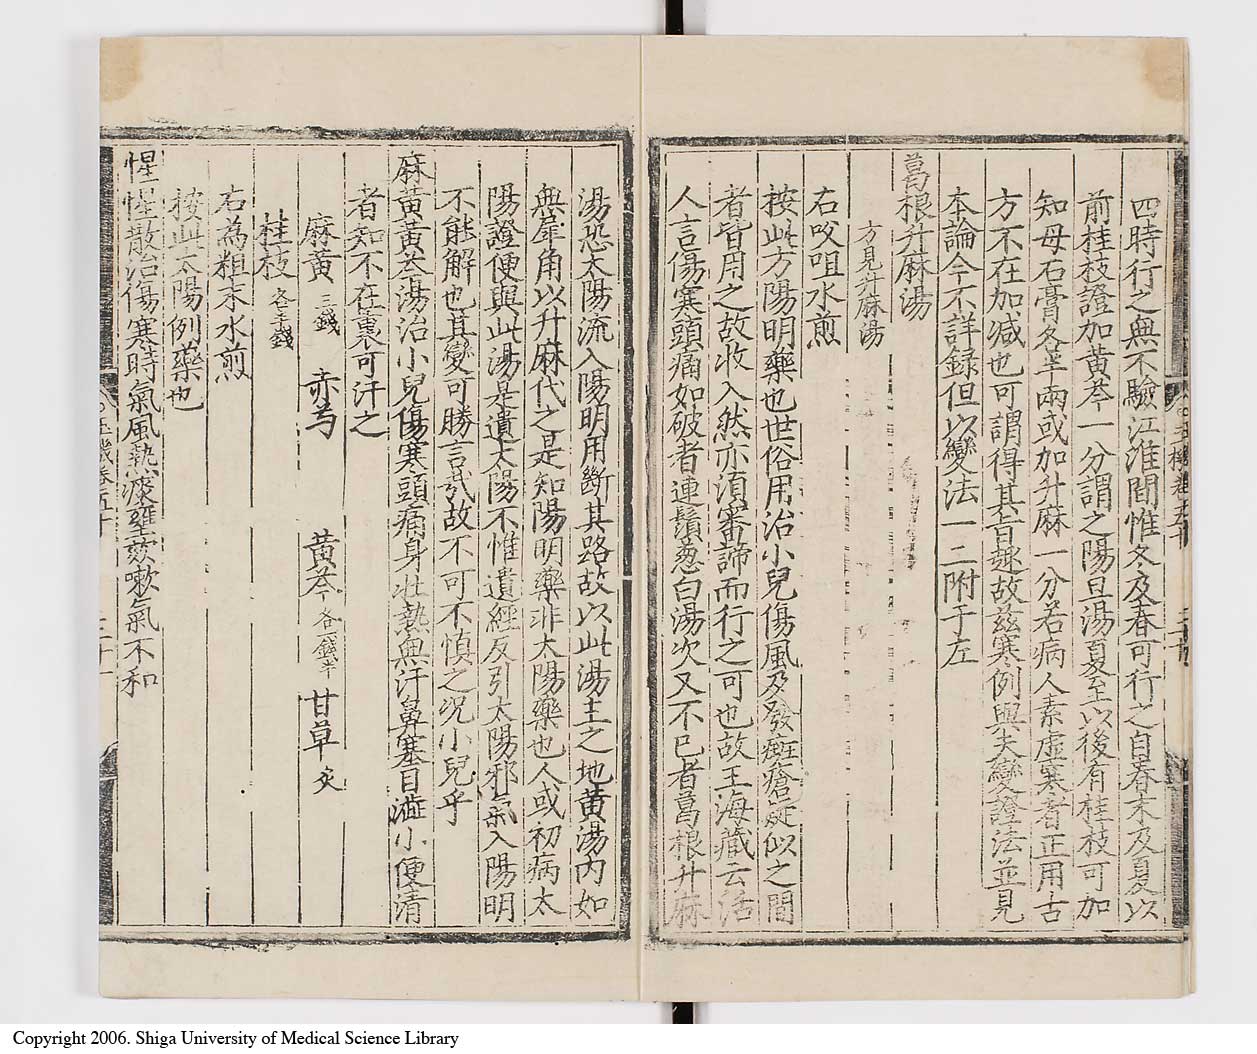 四時行之無不驗江淮間惟冬及春可行之自春末及夏以
前桂枝證加黄芩一分謂之陽旦湯夏至以後有桂枝可加
知母石膏各半兩或加升麻一分若病人素虚寒者正用古
方不在加減也可謂得其旨趣故兹寒例與夫變證法並見
本論今不詳録但以變法一二附于左
葛根升麻湯
方見升麻湯
右㕮咀水煎
按此方陽明藥也世俗用治小兒傷風及發斑瘡疑似之間
者皆用之故收入然亦須審諦而行之可也故王海藏云活
人言傷寒頭痛如破者連鬚葱白湯次又不已者葛根升麻
湯恐太陽流入陽明用斷其路故以此湯主之地黄湯内如
無犀角以升麻代之是知陽明藥非太陽藥也人或初病太
陽證便與此湯是遺太陽不惟遺經反引太陽邪氣入陽明
不能解也其變可勝言㢤故不可不慎之况小兒乎
麻黄黄芩湯治小兒傷寒頭痛身壯熱無汗鼻塞目澁小便清
者知不在裏可汗之
麻黄三錢 赤芍 黄芩各一錢半 甘草炙
桂枝各半錢
右為粗末水煎
按此太陽例藥也
惺惺散治傷寒時氣風熱痰壅欬嗽氣不和
Copyright 2006. Shiga University of Medical Science Library